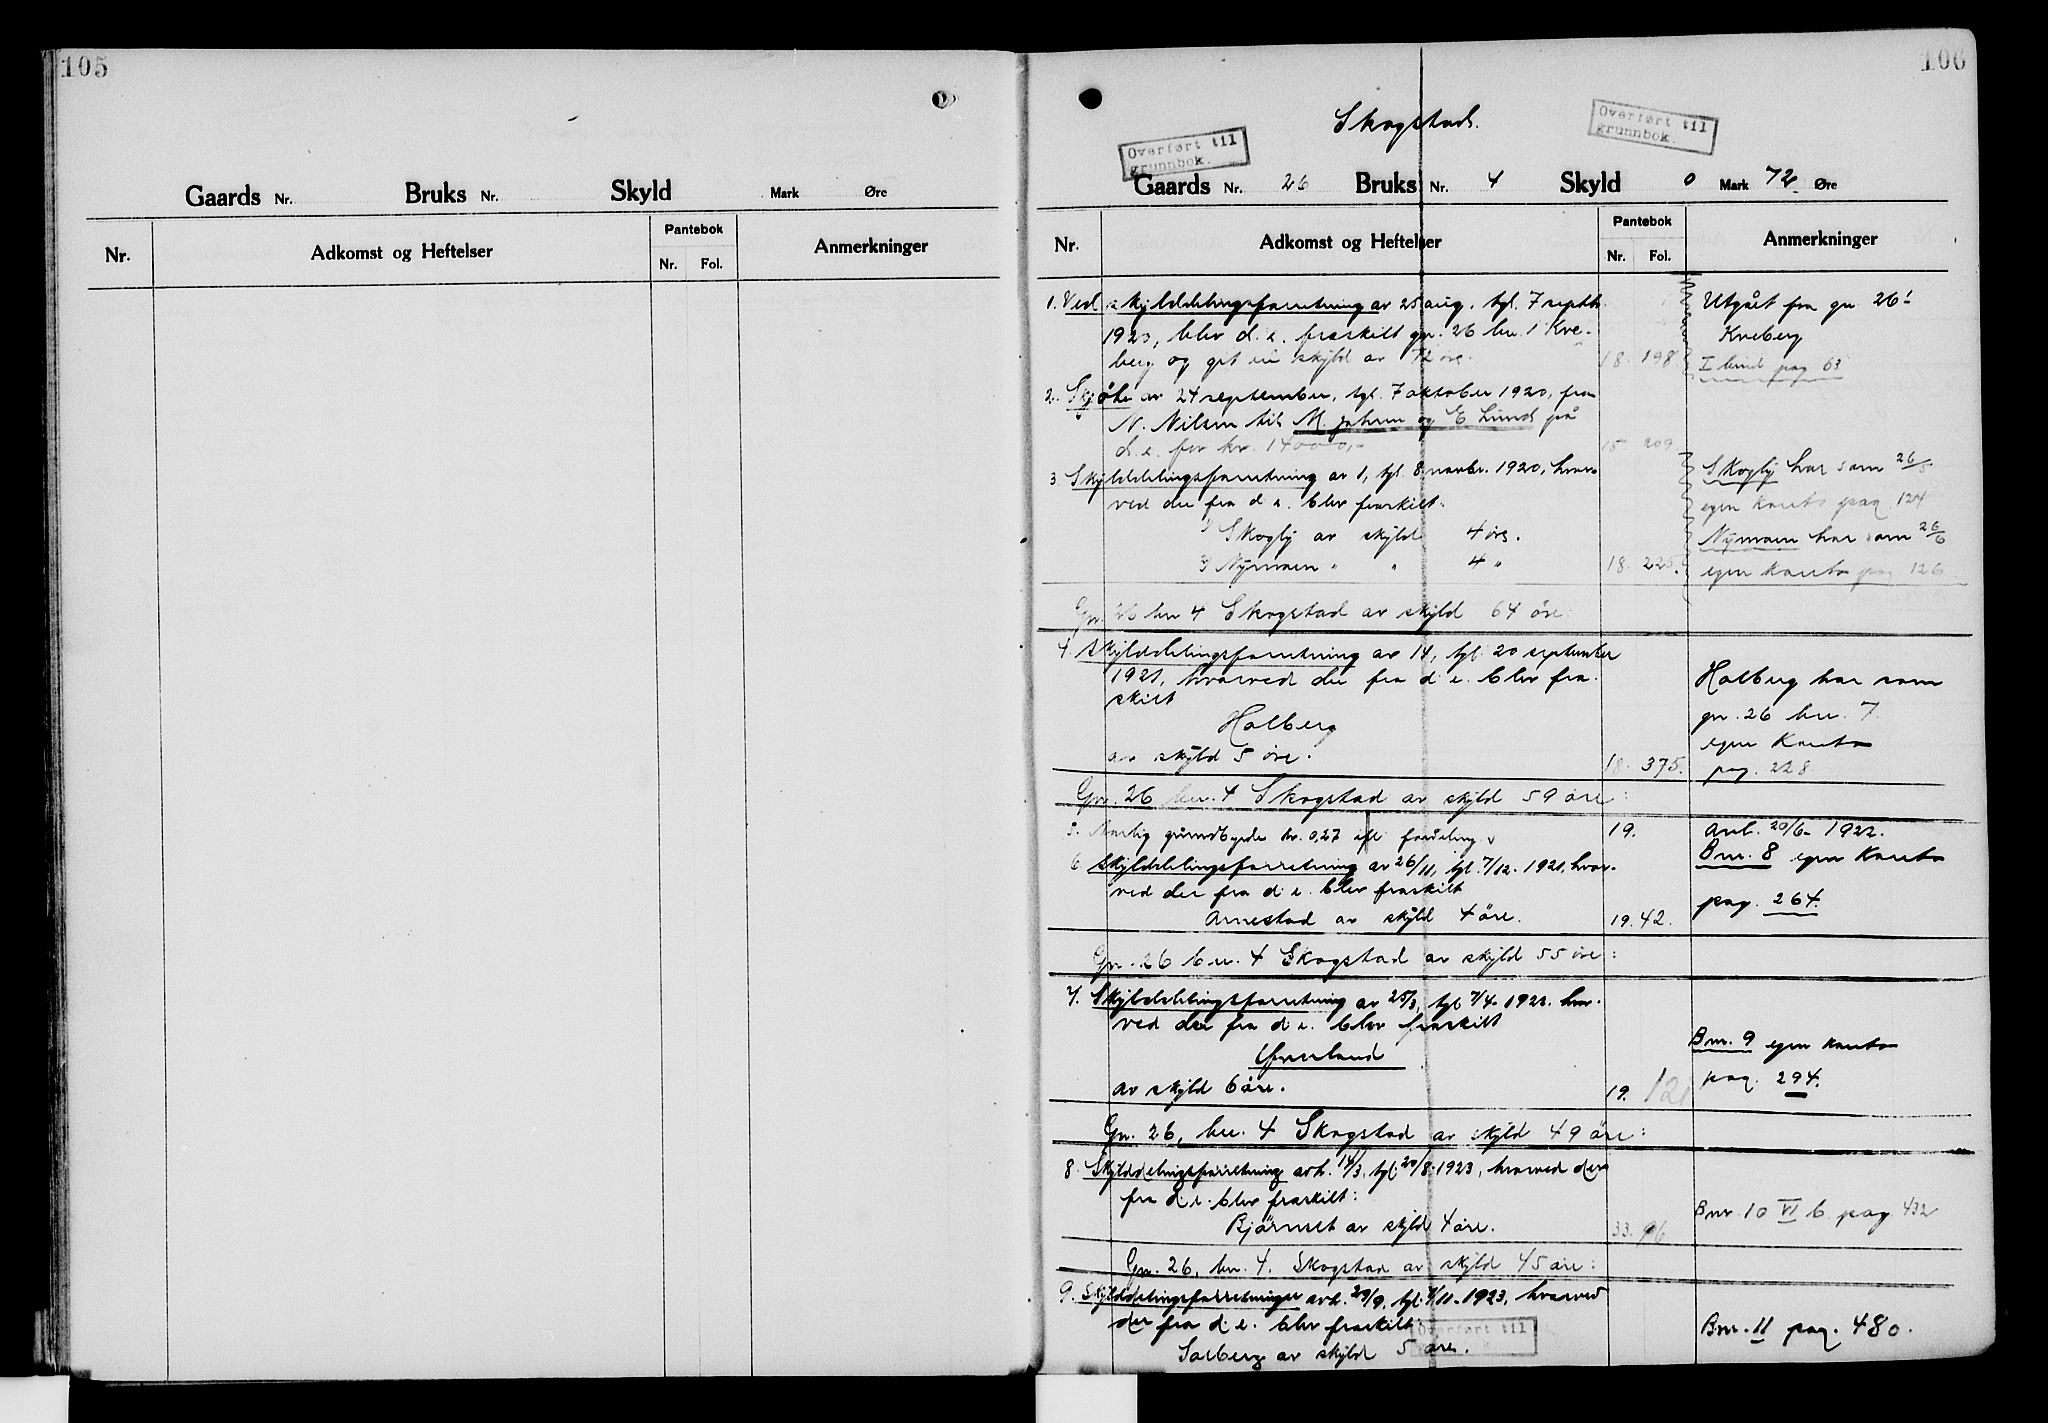 105
Gaards Nr. Bruks Nr. Skyld Mark Øre
Nr. Adkomst og Heftelser Pantebok Anmerkninger
Nr. Fol.
106
Skogstad.
Overført til
grunnbok.
Overført til
grunnbok.
Gaards Nr. 26 Bruks Nr. 4 Skyld 0 Mark 72 Øre
Nr. Adkomst og Heftelser Pantebok Anmerkninger
Nr. Fol.
1. Ved skylddelingsforretning av 25 aug. tgl. 7 septbr. Utgået fra gn 26/1
1920, blev d. e. fraskilt gn. 26 bn. 1 Kve- Kveberg
berg og git en skyld av 72 øre. 18. 198 I bind pag 63
2. Skjöte av 24 september, tgl. 7 oktober 1920, fra
N. Nilsen til M. Jahren og E Lund på
d. e. for kr. 14000,- 209
3. Skylddelingsforretning av 1, tgl. 8 novbr. 1920, hvor- Skogly har som 26/5
ved der fra d e. blev fraskilt. egen konto pag. 124
1) Skogly av skyld 4 öre. Nymoen har som 26/6
2) Nymoen " " 4 " 18. 225. egen konto pag 126
Gn. 26 bn 4 Skogstad av skyld 64 öre:
4. Skylddelingsforretning av 14, tgl. 20 september
1921, hvorved der fra d e. blev fra- Holberg har som
skilt gn. 26 bn. 7.
Holberg egen Konto
av skyld 5 öre. 18. 375. pag. 228.
Gn. 26 bn. 4 Skogstad av skyld 59 öre:
5. Aarlig grundbyrde kr. 0,27 efl. fordeling. 19. anl. 20/6- 1922.
6 Skylddelingsforretning av 26/11, tgl. 7/12. 1921, hvor- Bnr. 8 egen Konto
ved der fra d. e. blev fraskilt pag. 264.
Arnestad av skyld 4 öre. 19. 42.
Gn. 26 bn. 4 Skogstad av skyld 55 öre:
7. Skylddelingsforretning av 25/3, tgl 7/4- 1922. hvor-
ved der fra d. e. blev fraskilt Bnr. 9 egen konto
av skyld 6 öre. 19. 121 pag. 294.
Gn. 26, bn. 4 Skogstad av skyld 49 öre:
8. Skylddelingsforretning avh. 14/3, tgl. 20/8 1923, hvorved der
fra d e. blev fraskilt: Bnr. 10 VI b. pag 432
Bjørnset av skyld 4 öre. 33. 96
Gn. 26, bn. 4. Skogstad av skyld 45 öre:
9. Skylddelingsforretninger avh. 29/9, tgl. 7/11- 1923, hvorved
der fra d. e. blev fraskilt: Bnr. 11 pag. 480.
Solberg av skyld 5 öre.
Overført til